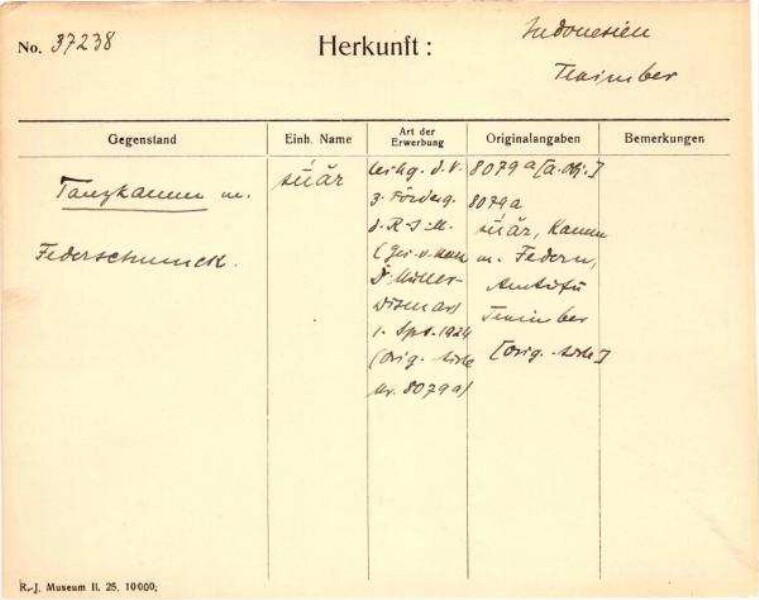 No. 37238
Herkunft:
Indonesien
Tenimber
Gegenstand
Einh. Name
Art der Erwerbung
Originalangaben
Bemerkungen
Tanzkamm m.
Federschmuck.
súăr
Leihg. d. V.
z. Förderg.
d. R-J-M.
(Ges. v. Herrn
Dr. Müller-
Wismar)
1. Spt. 1924
(Orig. Liste
Nr. 8079a)
8079a [a. Obj.]
8079a
súăr, Kamm
m. Federn,
Amtufu
Tenimber
[Orig. Liste]
R.-J. Museum II. 25. 10000;